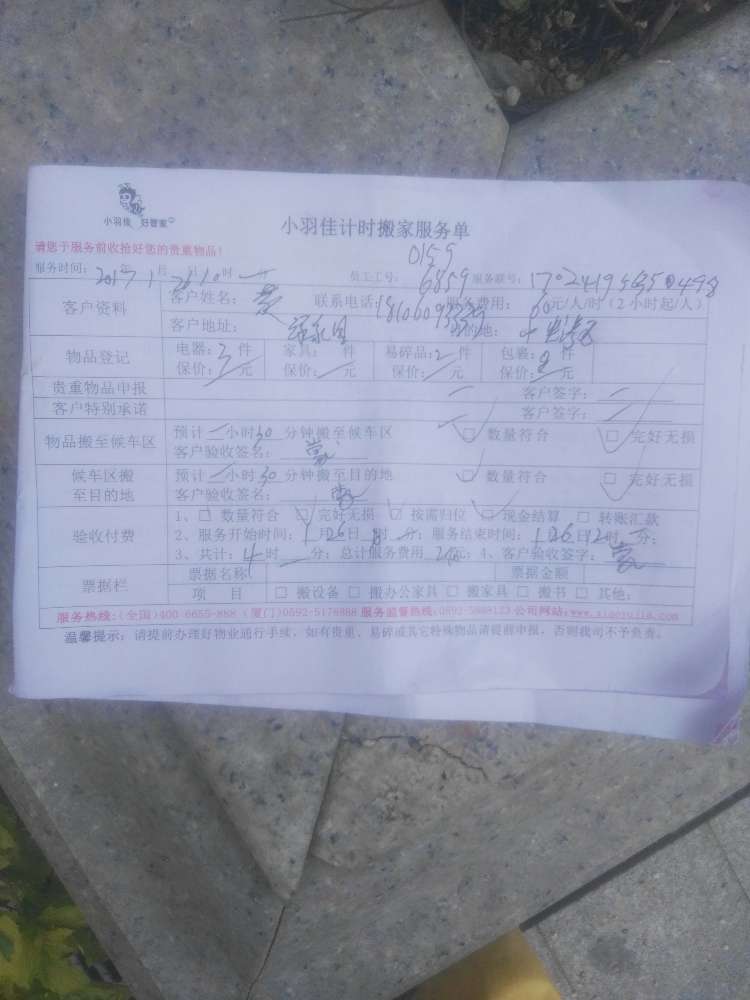 小羽佳 好管家
小羽佳计时搬家服务单
请您于服务前收拾好您的贵重物品!
0159
服务时间: 2017年1月26日10时 员工工号: 6859 服务联号:
客户资料 客户姓名: 联系电话: 服务费用: 60元/人/时(2小时起/人)
客户地址: 目的地:
物品登记 电器: 3件 家具: 件 易碎品: 2件 包裹: 2件
保价: 元 保价: 元 保价: 元 保价: 元
贵重物品申报 客户签字:
客户特别承诺 客户签字:
物品搬至候车区 预计 小时30分钟搬至候车区 □ 数量符合 □ 完好无损
客户验收签名:
候车区搬至目的地 预计 小时30分钟搬至目的地 □ 数量符合 □ 完好无损
客户验收签名:
验收付费 1、□ 数量符合 □ 完好无损 □ 按需归位 □ 现金结算 □ 转账汇款
2、服务开始时间: 1月26日8时 分; 服务结束时间: 1月26日12时 分;
3、共计: 4时 分; 总计服务费用 240元; 4、客户验收签字:
票据栏 票据名称 票据金额
项目 □ 搬设备 □ 搬办公家具 □ 搬家具 □ 搬书 □ 其他:
服务热线:(全国)400-6655-888 (厦门)0592-5178888 服务监督热线:0592-5888123 公司网站:www.xiaoyujia.com
温馨提示: 请提前办理好物业通行手续,如有贵重、易碎或其它特殊物品请提前申报,否则我司不予负责。